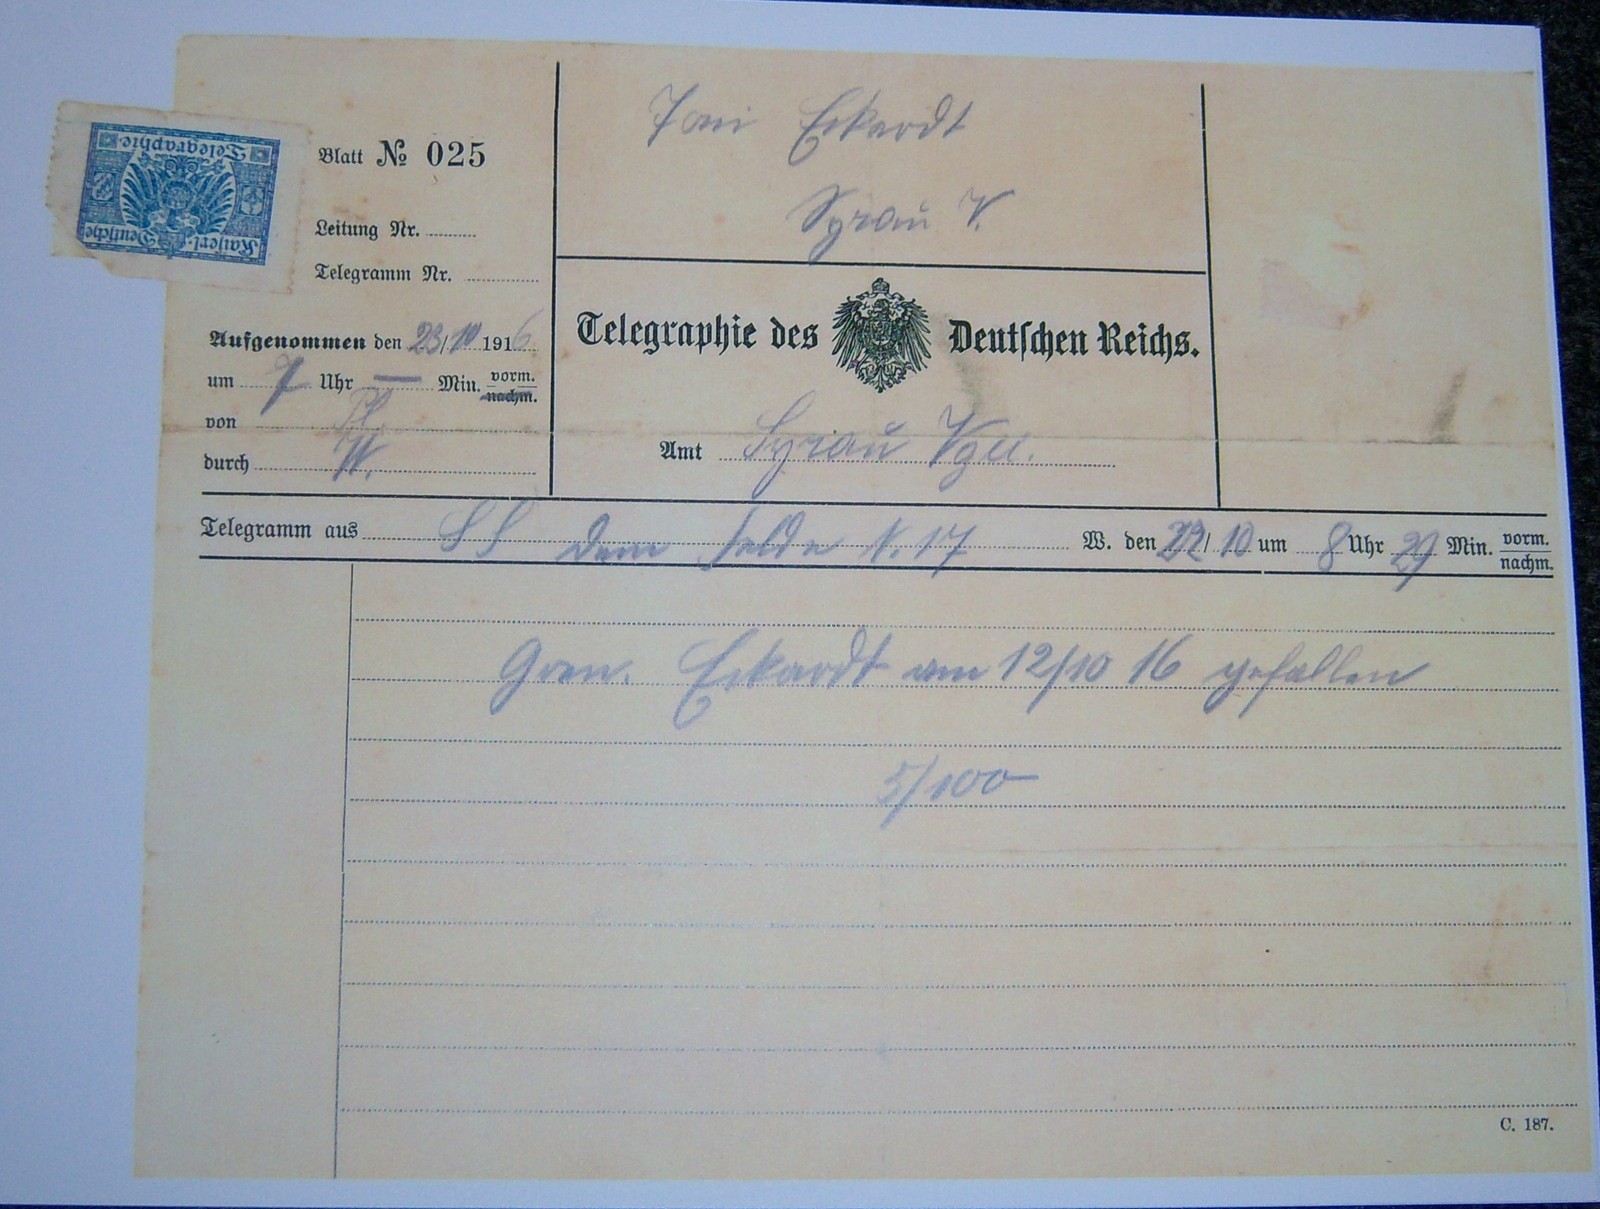 Kaiserl. Deutsche
Telegraphie.
Blatt № 025
Leitung Nr.
Telegramm Nr.
Aufgenommen den 23/10 1916
um 7 Uhr — Min. vorm.
nachm.
von Pl.
durch W.
Toni Eckardt
Syrau V.
Telegraphie des Deutschen Reichs.
Amt Syrau Vgtl.
Telegramm aus SS dem Felde N. 17 W. den 22/10 um 8 Uhr 29 Min. vorm.
nachm.
Gren. Eckardt am 12/10 16 gefallen
5/100
C. 187.